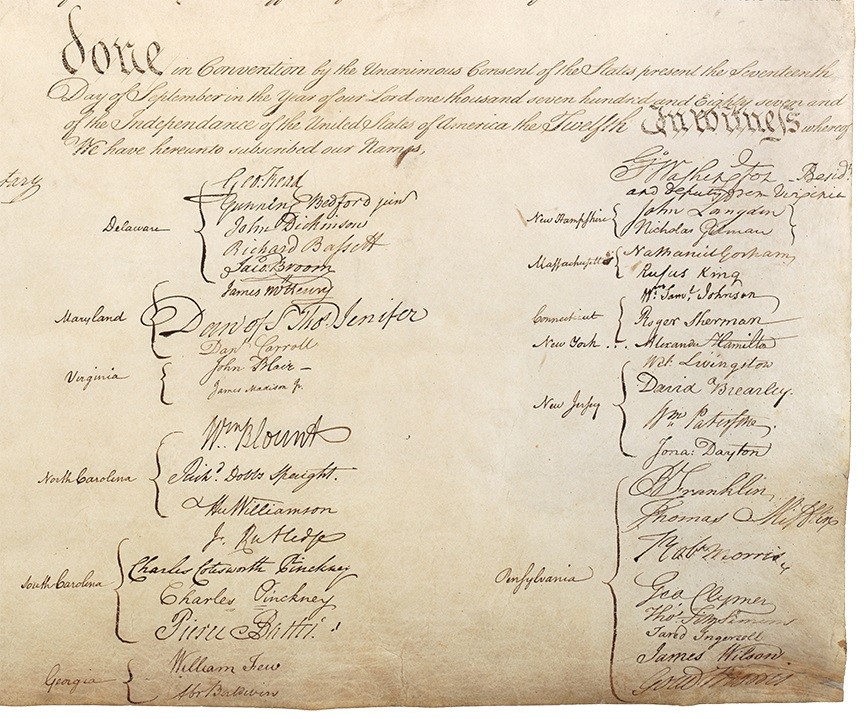 done in Convention by the Unanimous Consent of the States present the Seventeenth
Day of September in the Year of our Lord one thousand seven hundred and Eighty seven and
of the Independance of the United States of America the Twelfth In witness whereof
We have hereunto subscribed our Names,
tary
Delaware
Geo: Read
Gunning Bedford jun
John Dickinson
Richard Bassett
Jaco: Broom
Maryland
James McHenry
Dan of St Thos. Jenifer
Danl. Carroll
Virginia
John Blair —
James Madison Jr.
North Carolina
Wm Blount
Richd. Dobbs Spaight.
Hu Williamson
South Carolina
J. Rutledge
Charles Cotesworth Pinckney
Charles Pinckney
Pierce Butler.
Georgia
William Few
Abr Baldwin
Go. Washington Presidt.
and deputy from Virginia
New Hampshire
John Langdon
Nicholas Gilman
Massachusetts
Nathaniel Gorham
Rufus King
Connecticut
Wm. Saml. Johnson
Roger Sherman
New York . . . Alexander Hamilton
New Jersey
Wil: Livingston
David Brearley.
Wm Paterson.
Jona: Dayton
Pensylvania
B Franklin
Thomas Mifflin
Robt Morris
Geo. Clymer
Thos. FitzSimons
Jared Ingersoll
James Wilson
Gouv Morris